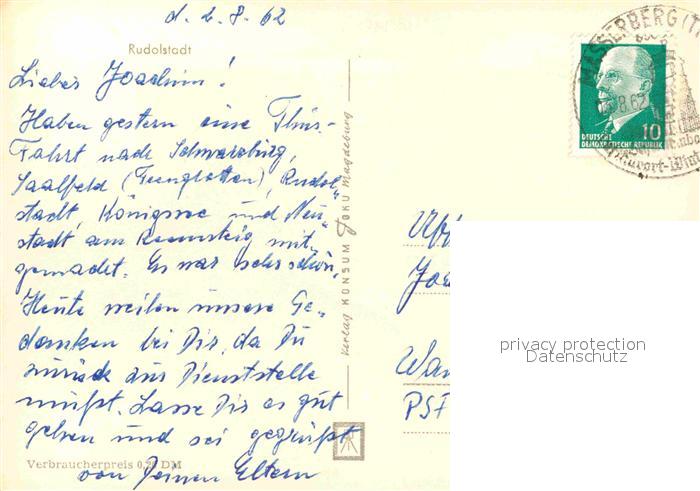 d. 2.8.62
Rudolstadt
Lieber Joachim!
Haben gestern eine Thür.-
Fahrt nach Schwarzburg,
Saalfeld (Feengrotten), Rudol-
stadt, Königsee und Neu-
stadt am Rennsteig mit-
gemacht. Es war sehr schön.
Heute weilen unsere Ge-
danken bei Dir, da Du
zurück zur Dienststelle
mußt. Lasse Dir es gut
gehen und sei gegrüßt
von Deinen Eltern
Verbraucherpreis 0,20 DM
Verlag KONSUM FOKU Magdeburg
MASSERBERG (TH
8.62
10
DEUTSCHE
DEMOKRATISCHE REPUBLIK
Kurort
PSF
privacy protection
Datenschutz